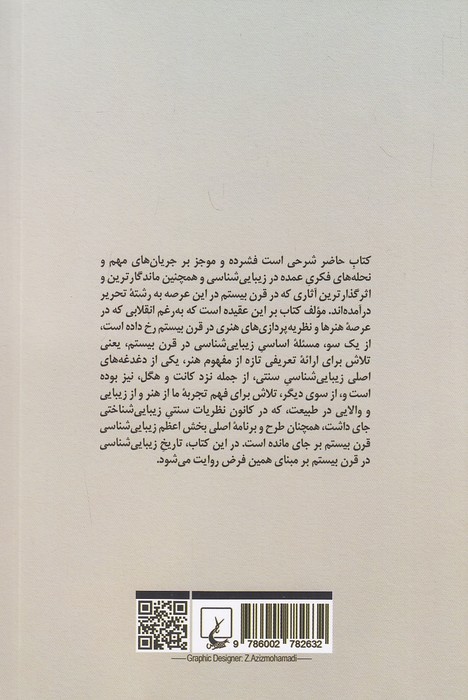 کتابِ حاضر شرحی است فشرده و موجز بر جریان‌های مهم و
نحله‌های فکریِ عمده در زیبایی‌شناسی و همچنین ماندگارترین و
اثرگذارترین آثاری که در قرن بیستم در این عرصه به رشتهٔ تحریر
درآمده‌اند. مؤلف کتاب بر این عقیده است که به‌رغم انقلابی که در
عرصهٔ هنرها و نظریه‌پردازی‌های هنری در قرن بیستم رخ داده است،
از یک سو، مسئلهٔ اساسیِ زیبایی‌شناسی در قرن بیستم، یعنی
تلاش برای ارائهٔ تعریفی تازه از مفهوم هنر، یکی از دغدغه‌های
اصلی زیبایی‌شناسیِ سنتی، از جمله نزد کانت و هگل، نیز بوده
است و، از سوی دیگر، تلاش برای فهم تجربهٔ ما از هنر و از زیبایی
و والایی در طبیعت، که در کانون نظریات سنتیِ زیبایی‌شناختی
جای داشت، همچنان طرح و برنامهٔ اصلی بخش اعظم زیبایی‌شناسی
قرن بیستم بر جای مانده است. در این کتاب، تاریخِ زیبایی‌شناسی
در قرن بیستم بر مبنای همین فرض روایت می‌شود.
9 786002 782632
Graphic Designer: Z.Azizmohamadi